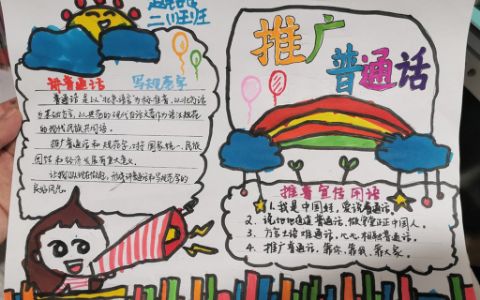 二班
讲普通话 写规范字
普通话是以北京语音为标准音,以北方话
为基础方言,以典范的现代白话文著作为语法规范
的现代民族共同语。
推广普通话和规范字,对于国家统一、民族
团结和经济发展有重大意义。
推广
普通话
推普宣传用语
1、我是中国娃,爱说普通话。
2、说地地道道普通话,做堂堂正正中国人。
3、方言土语难通话,心心相融普通话。
4、推广普通话,靠你,靠我,靠大家。